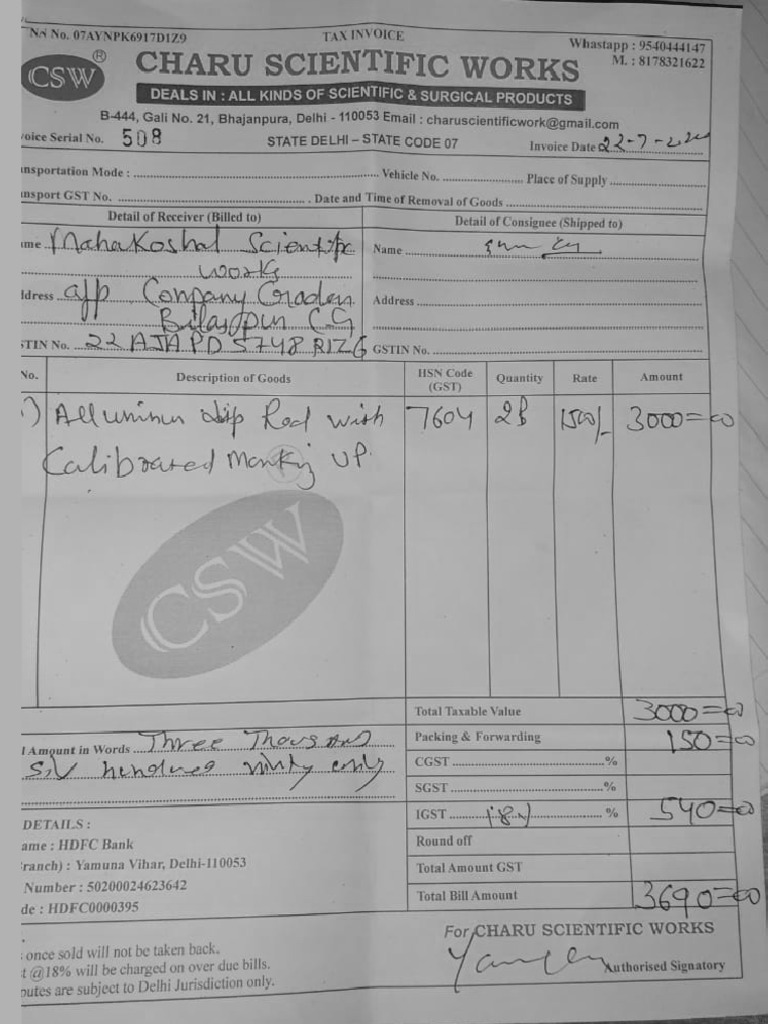 No. 07AYNPK6917D1Z9 TAX INVOICE Whastapp : 9540444147
M. : 8178321622
CSW ® CHARU SCIENTIFIC WORKS
DEALS IN : ALL KINDS OF SCIENTIFIC & SURGICAL PRODUCTS
B-444, Gali No. 21, Bhajanpura, Delhi - 110053 Email : charuscientificwork@gmail.com
oice Serial No. 508 STATE DELHI – STATE CODE 07 Invoice Date 22-7-
nsportation Mode : Vehicle No. Place of Supply
nsport GST No. Date and Time of Removal of Goods
Detail of Receiver (Billed to) Detail of Consignee (Shipped to)
me Mahakoshal Scientific Name
works
dress Company Garden Address
Bilaspur CG
TIN No. 22 AJAPD5748R1Z6 GSTIN No.
No. Description of Goods HSN Code (GST) Quantity Rate Amount
) Alluminum dip Rod with 7604 1500/- 3000=00
Calibrated Marking UP.
CSW
Total Taxable Value 3000=00
l Amount in Words Three Thousand Packing & Forwarding 150=00
Six hundred ninty only CGST %
SGST %
IGST 18% % 540=00
DETAILS :
ame : HDFC Bank Round off
ranch) : Yamuna Vihar, Delhi-110053 Total Amount GST
Number : 50200024623642
de : HDFC0000395 Total Bill Amount 3690=00
For CHARU SCIENTIFIC WORKS
once sold will not be taken back.
t @18% will be charged on over due bills. Authorised Signatory
putes are subject to Delhi Jurisdiction only.